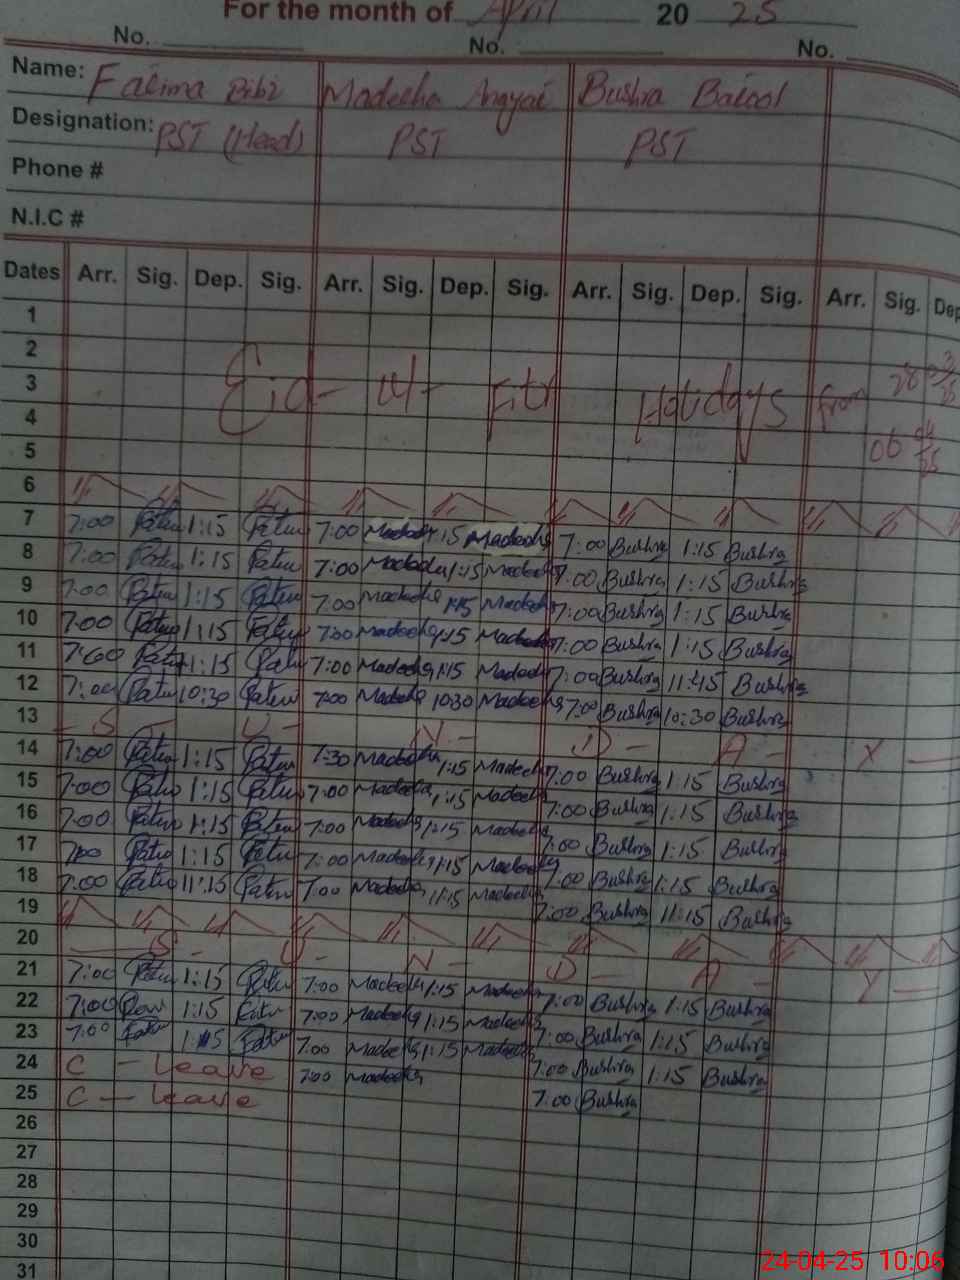 For the month of April 20 25
No. No. No.
Name: Fatima Bibi Madeeha Anayat Bushra Batool
Designation: PST (Head) PST PST
Phone #
N.I.C #
Dates Arr. Sig. Dep. Sig. Arr. Sig. Dep. Sig. Arr. Sig. Dep. Sig. Arr. Sig. Dep
1
2
3 Eid-ul-Fitr Holidays from 28 03 25
4
5 06 04 25
6
7 7:00 1:15 7:00 Madeeha 1:15 Madeeha 7:00 Bushra 1:15 Bushra
8 7:00 1:15 7:00 Madeeha 1:15 Madeeha 7:00 Bushra 1:15 Bushra
9 7:00 1:15 7:00 Madeeha 1:15 Madeeha 7:00 Bushra 1:15 Bushra
10 7:00 1:15 7:00 Madeeha 1:15 Madeeha 7:00 Bushra 1:15 Bushra
11 7:00 1:15 7:00 Madeeha 1:15 Madeeha 7:00 Bushra 11:45 Bushra
12 7:00 10:30 7:00 Madeeha 10:30 Madeeha 7:00 Bushra 10:30 Bushra
13 - S - U - N - D - A - Y -
14 7:00 1:15 7:30 Madeeha 1:15 Madeeha 7:00 Bushra 1:15 Bushra
15 7:00 1:15 7:00 Madeeha 1:15 Madeeha 7:00 Bushra 1:15 Bushra
16 7:00 1:15 7:00 Madeeha 1:15 Madeeha 7:00 Bushra 1:15 Bushra
17 7:00 1:15 7:00 Madeeha 1:15 Madeeha 7:00 Bushra 1:15 Bushra
18 7:00 11:15 7:00 Madeeha 11:15 Madeeha 7:00 Bushra 11:15 Bushra
19
20 S - U - N - D - A - Y -
21 7:00 1:15 7:00 Madeeha 1:15 Madeeha 7:00 Bushra 1:15 Bushra
22 7:00 1:15 7:00 Madeeha 1:15 Madeeha 7:00 Bushra 1:15 Bushra
23 7:00 1:15 7:00 Madeeha 1:15 Madeeha 7:00 Bushra 1:15 Bushra
24 C - Leave 7:00 Madeeha 7:00 Bushra
25 C - Leave
26
27
28
29
30
31
24-04-25 10:06